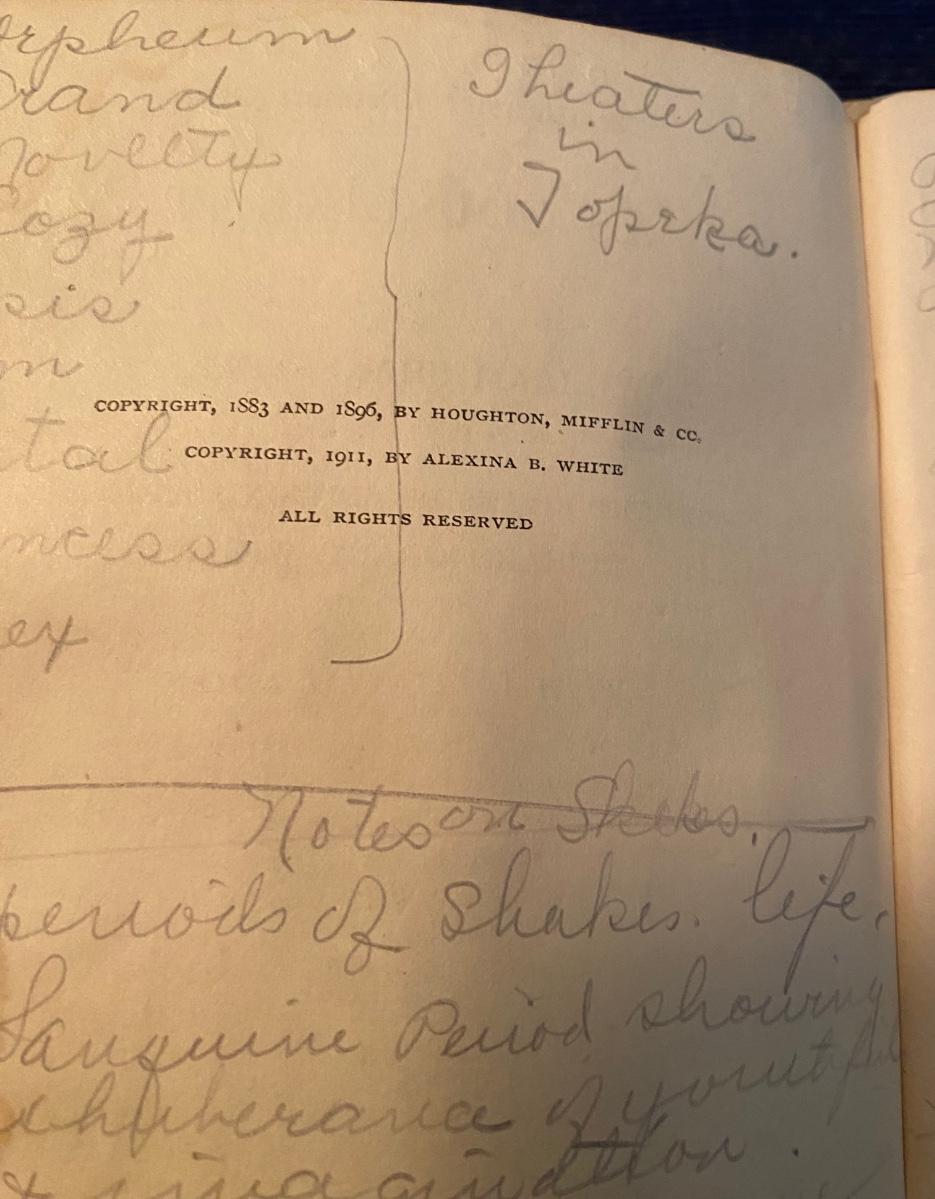 Orpheum
Grand
Novelty
Cozy
sis
m
tal
ncess
ex
Theaters
in
Topeka.
COPYRIGHT, 1883 AND 1896, BY HOUGHTON, MIFFLIN & CO.
COPYRIGHT, 1911, BY ALEXINA B. WHITE
ALL RIGHTS RESERVED
Notes on Shakes.
periods of Shakes. life.
Sanguine Period showing
of youthful
& imagination.